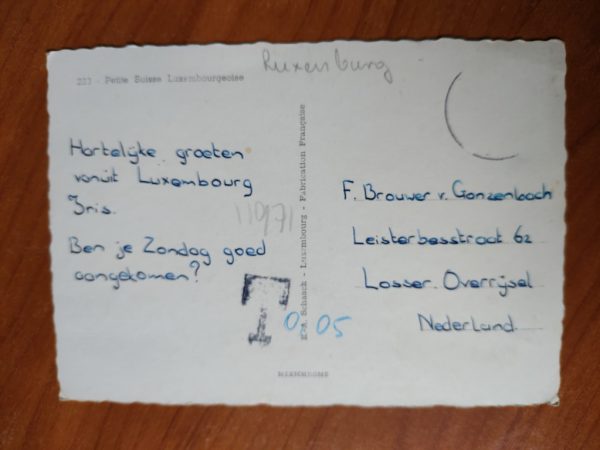 Luxemburg
223 - Petite Suisse Luxembourgeoise
Hartelijke groeten
vanuit Luxembourg
Iris.
Ben je Zondag goed
aangekomen?
1971
T 0.05
Schaack - Luxembourg - Fabrication Française
F. Brouwer v. Gonzenbach
Leisterbesstraat 62
Losser. Overrijsel
Nederland.